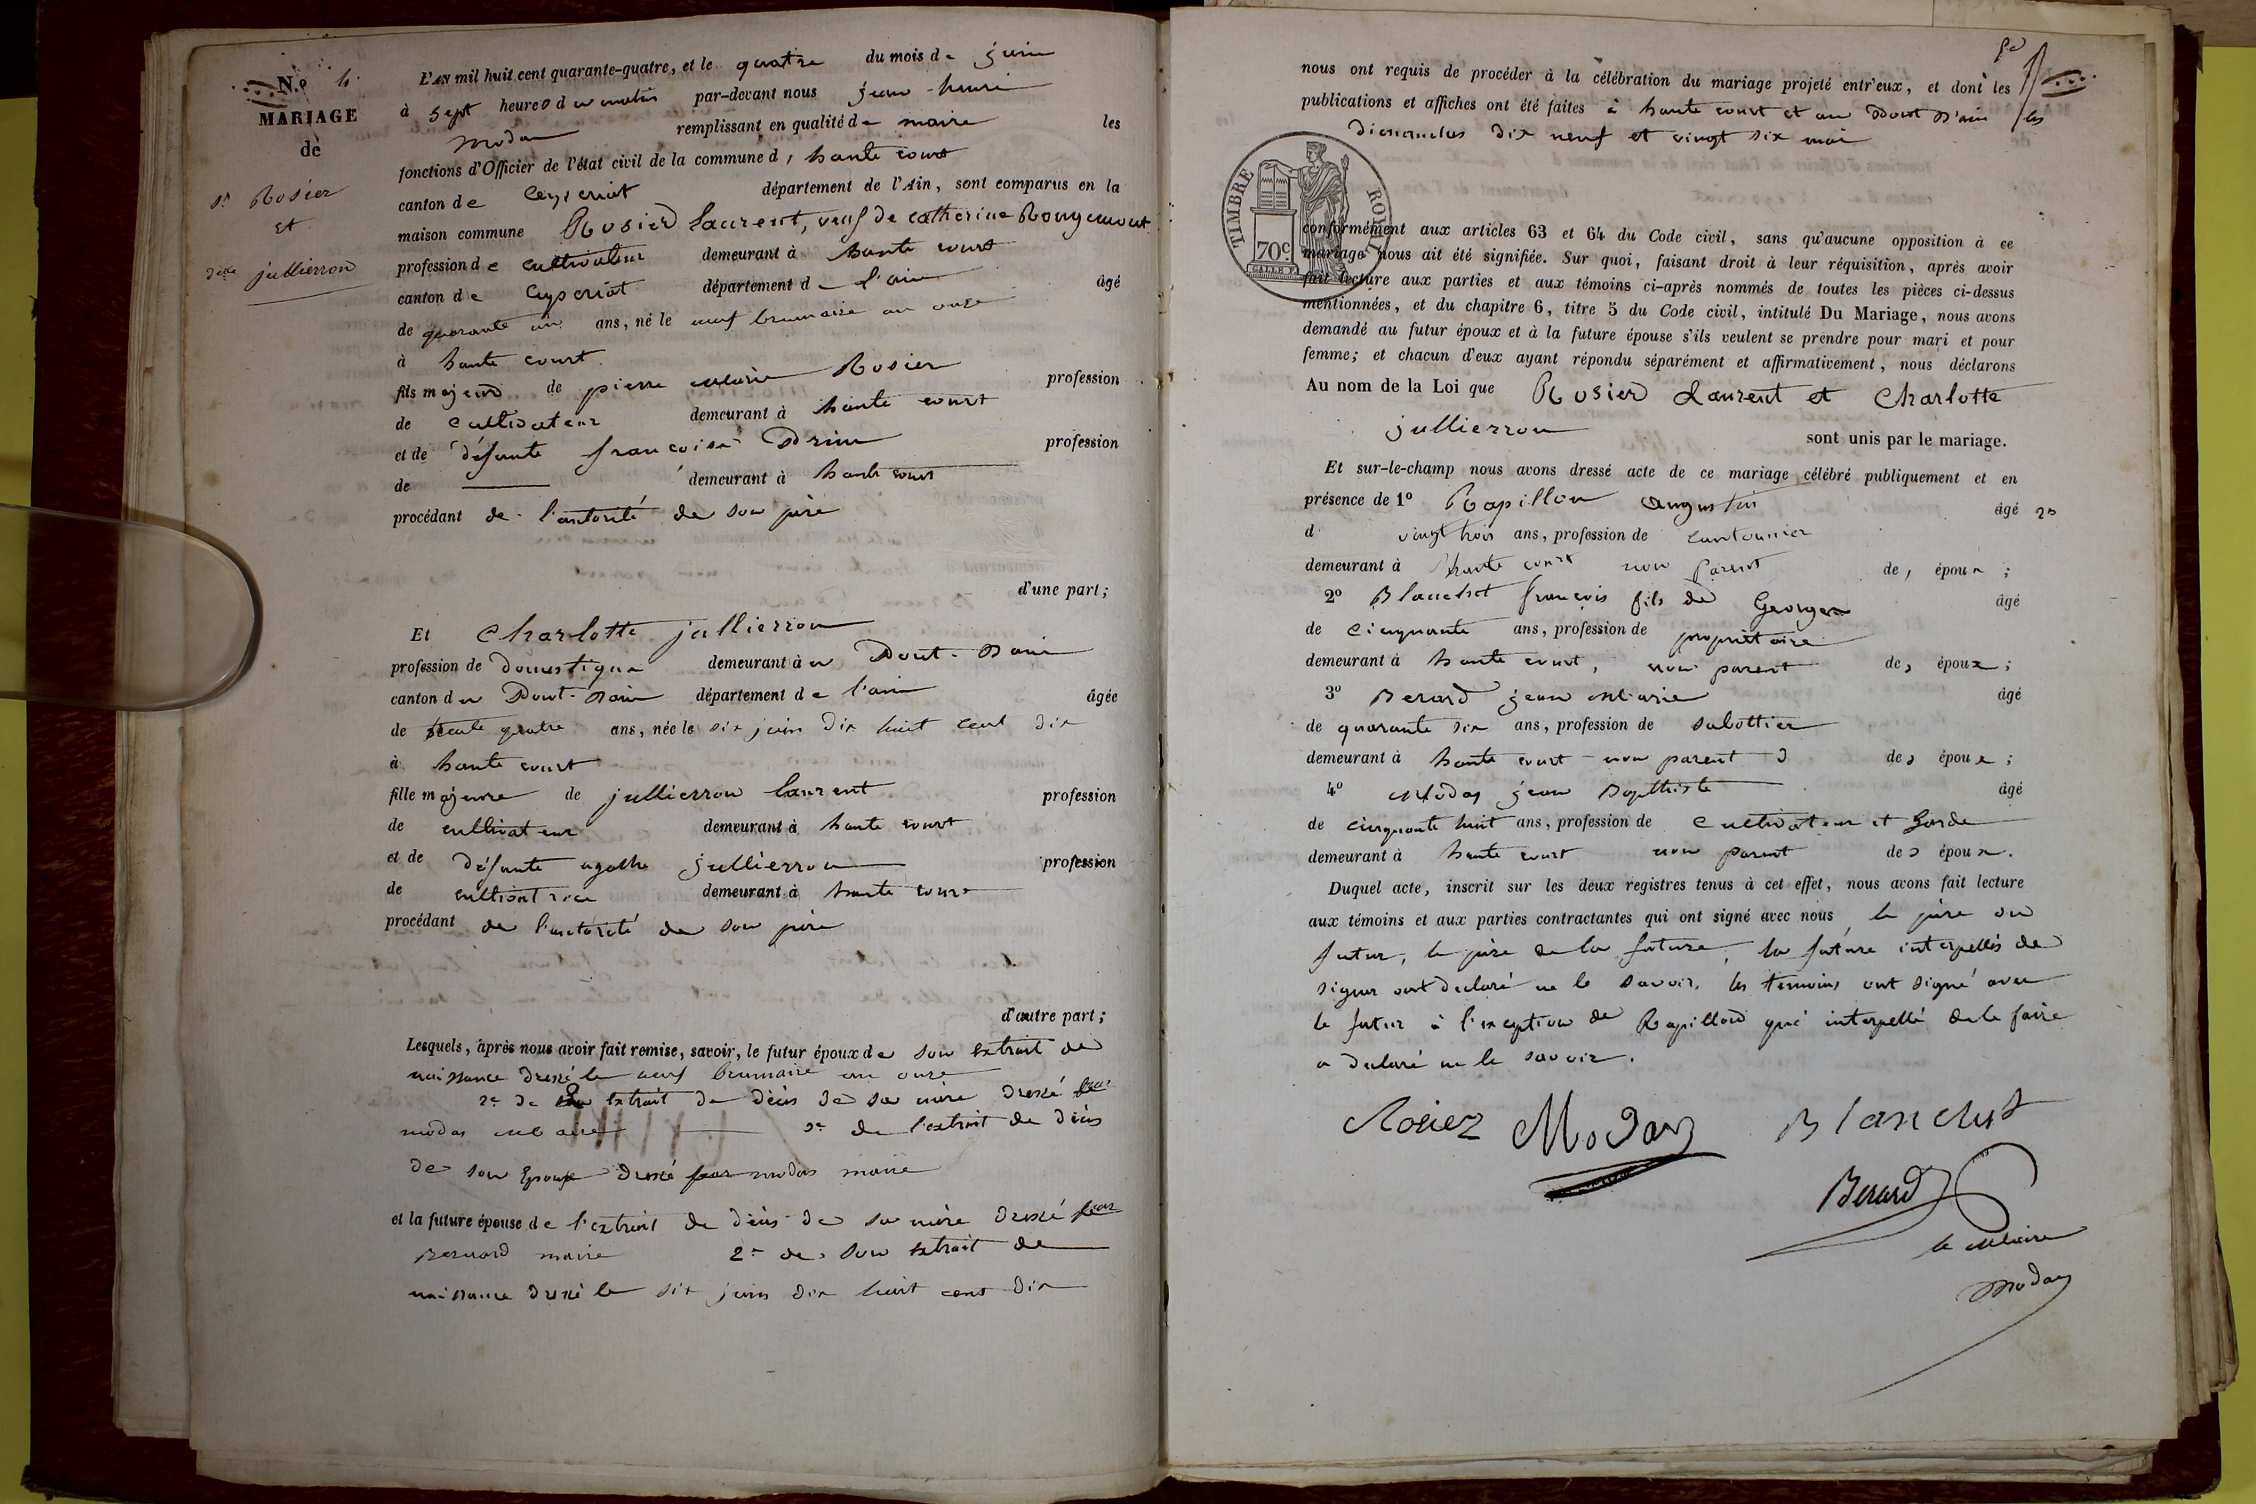 N.º 4.
MARIAGE
de
Sr Rosier
et
Delle jullierron
L'AN mil huit cent quarante-quatre, et le quatre du mois de juin
à sept heures du matin par-devant nous jean-henri
modas remplissant en qualité de maire les
fonctions d'Officier de l'état civil de la commune d, haute court
canton de Ceyseriat département de l'Ain, sont comparus en la
maison commune Rosier Laurent, veuf de catherine Rougemont
profession de cultivateur demeurant à haute court
canton de Ceyseriat département de l'ain âgé
de quarante un ans, né le neuf brumaire an onze
à haute court
fils majeur de pierre marie Rosier profession
de cultivateur demeurant à haute court
et de défunte françoise Drin profession
de demeurant à haute court
procédant de l'autorité de son père
d'une part;
Et Charlotte jullierron
profession de Domestique demeurant à u Pont-Dain
canton du Pont-Dain département de l'ain âgée
de trente quatre ans, née le six juin dix huit cent dix
à haute court
fille majeure de jullierron laurent profession
de cultivateur demeurant à haute court
et de défunte agathe jullierron profession
de cultivatrice demeurant à haute court
procédant de l'autorité de son père
d'autre part;
Lesquels, après nous avoir fait remise, savoir, le futur époux de son extrait de
naissance dressé le neuf brumaire an onze
2e de extrait de décès de sa mère dressé par
modas maire 3e de l'extrait de décès
de son Epouse dressé par modas maire
et la future épouse de l'extrait de décès de sa mère dressé par
Bernard maire 2e de son extrait de
naissance dressé le six juin dix huit cent dix
nous ont requis de procéder à la célébration du mariage projeté entr'eux, et dont les
publications et affiches ont été faites à haute court et au Pont D'ain les
Dimanches dix neuf et vingt six mai
TIMBRE ROYAL
70c
conformément aux articles 63 et 64 du Code civil, sans qu'aucune opposition à ce
mariage nous ait été signifiée. Sur quoi, faisant droit à leur réquisition, après avoir
fait lecture aux parties et aux témoins ci-après nommés de toutes les pièces ci-dessus
mentionnées, et du chapitre 6, titre 5 du Code civil, intitulé Du Mariage, nous avons
demandé au futur époux et à la future épouse s'ils veulent se prendre pour mari et pour
femme; et chacun d'eux ayant répondu séparément et affirmativement, nous déclarons
Au nom de la Loi que Rosier Laurent et Charlotte
jullierron sont unis par le mariage.
Et sur-le-champ nous avons dressé acte de ce mariage célébré publiquement et en
présence de 1º Rapillon augustin âgé
d vingt trois ans, profession de cantonnier
demeurant à haute court non parent de, époux;
2º Blanchet françois fils de Georges âgé
de cinquante ans, profession de propriétaire
demeurant à haute court, non parent des époux;
3º Berard jean marie âgé
de quarante six ans, profession de sabottier
demeurant à haute court non parent des époux;
4º Modas jean Bapthiste âgé
de cinquante huit ans, profession de cultivateur et garde
demeurant à haute court non parent des époux.
Duquel acte, inscrit sur les deux registres tenus à cet effet, nous avons fait lecture
aux témoins et aux parties contractantes qui ont signé avec nous, le père du
futur, le père de la future, la future interpellés de
signer ont declaré ne le savoir, les temoins ont signé avec
le futur à l'exception de Rapillon qui interpellé de le faire
a declaré ne le savoir.
Rosiez Modas Blanchet
Berard
le Maire
Modas